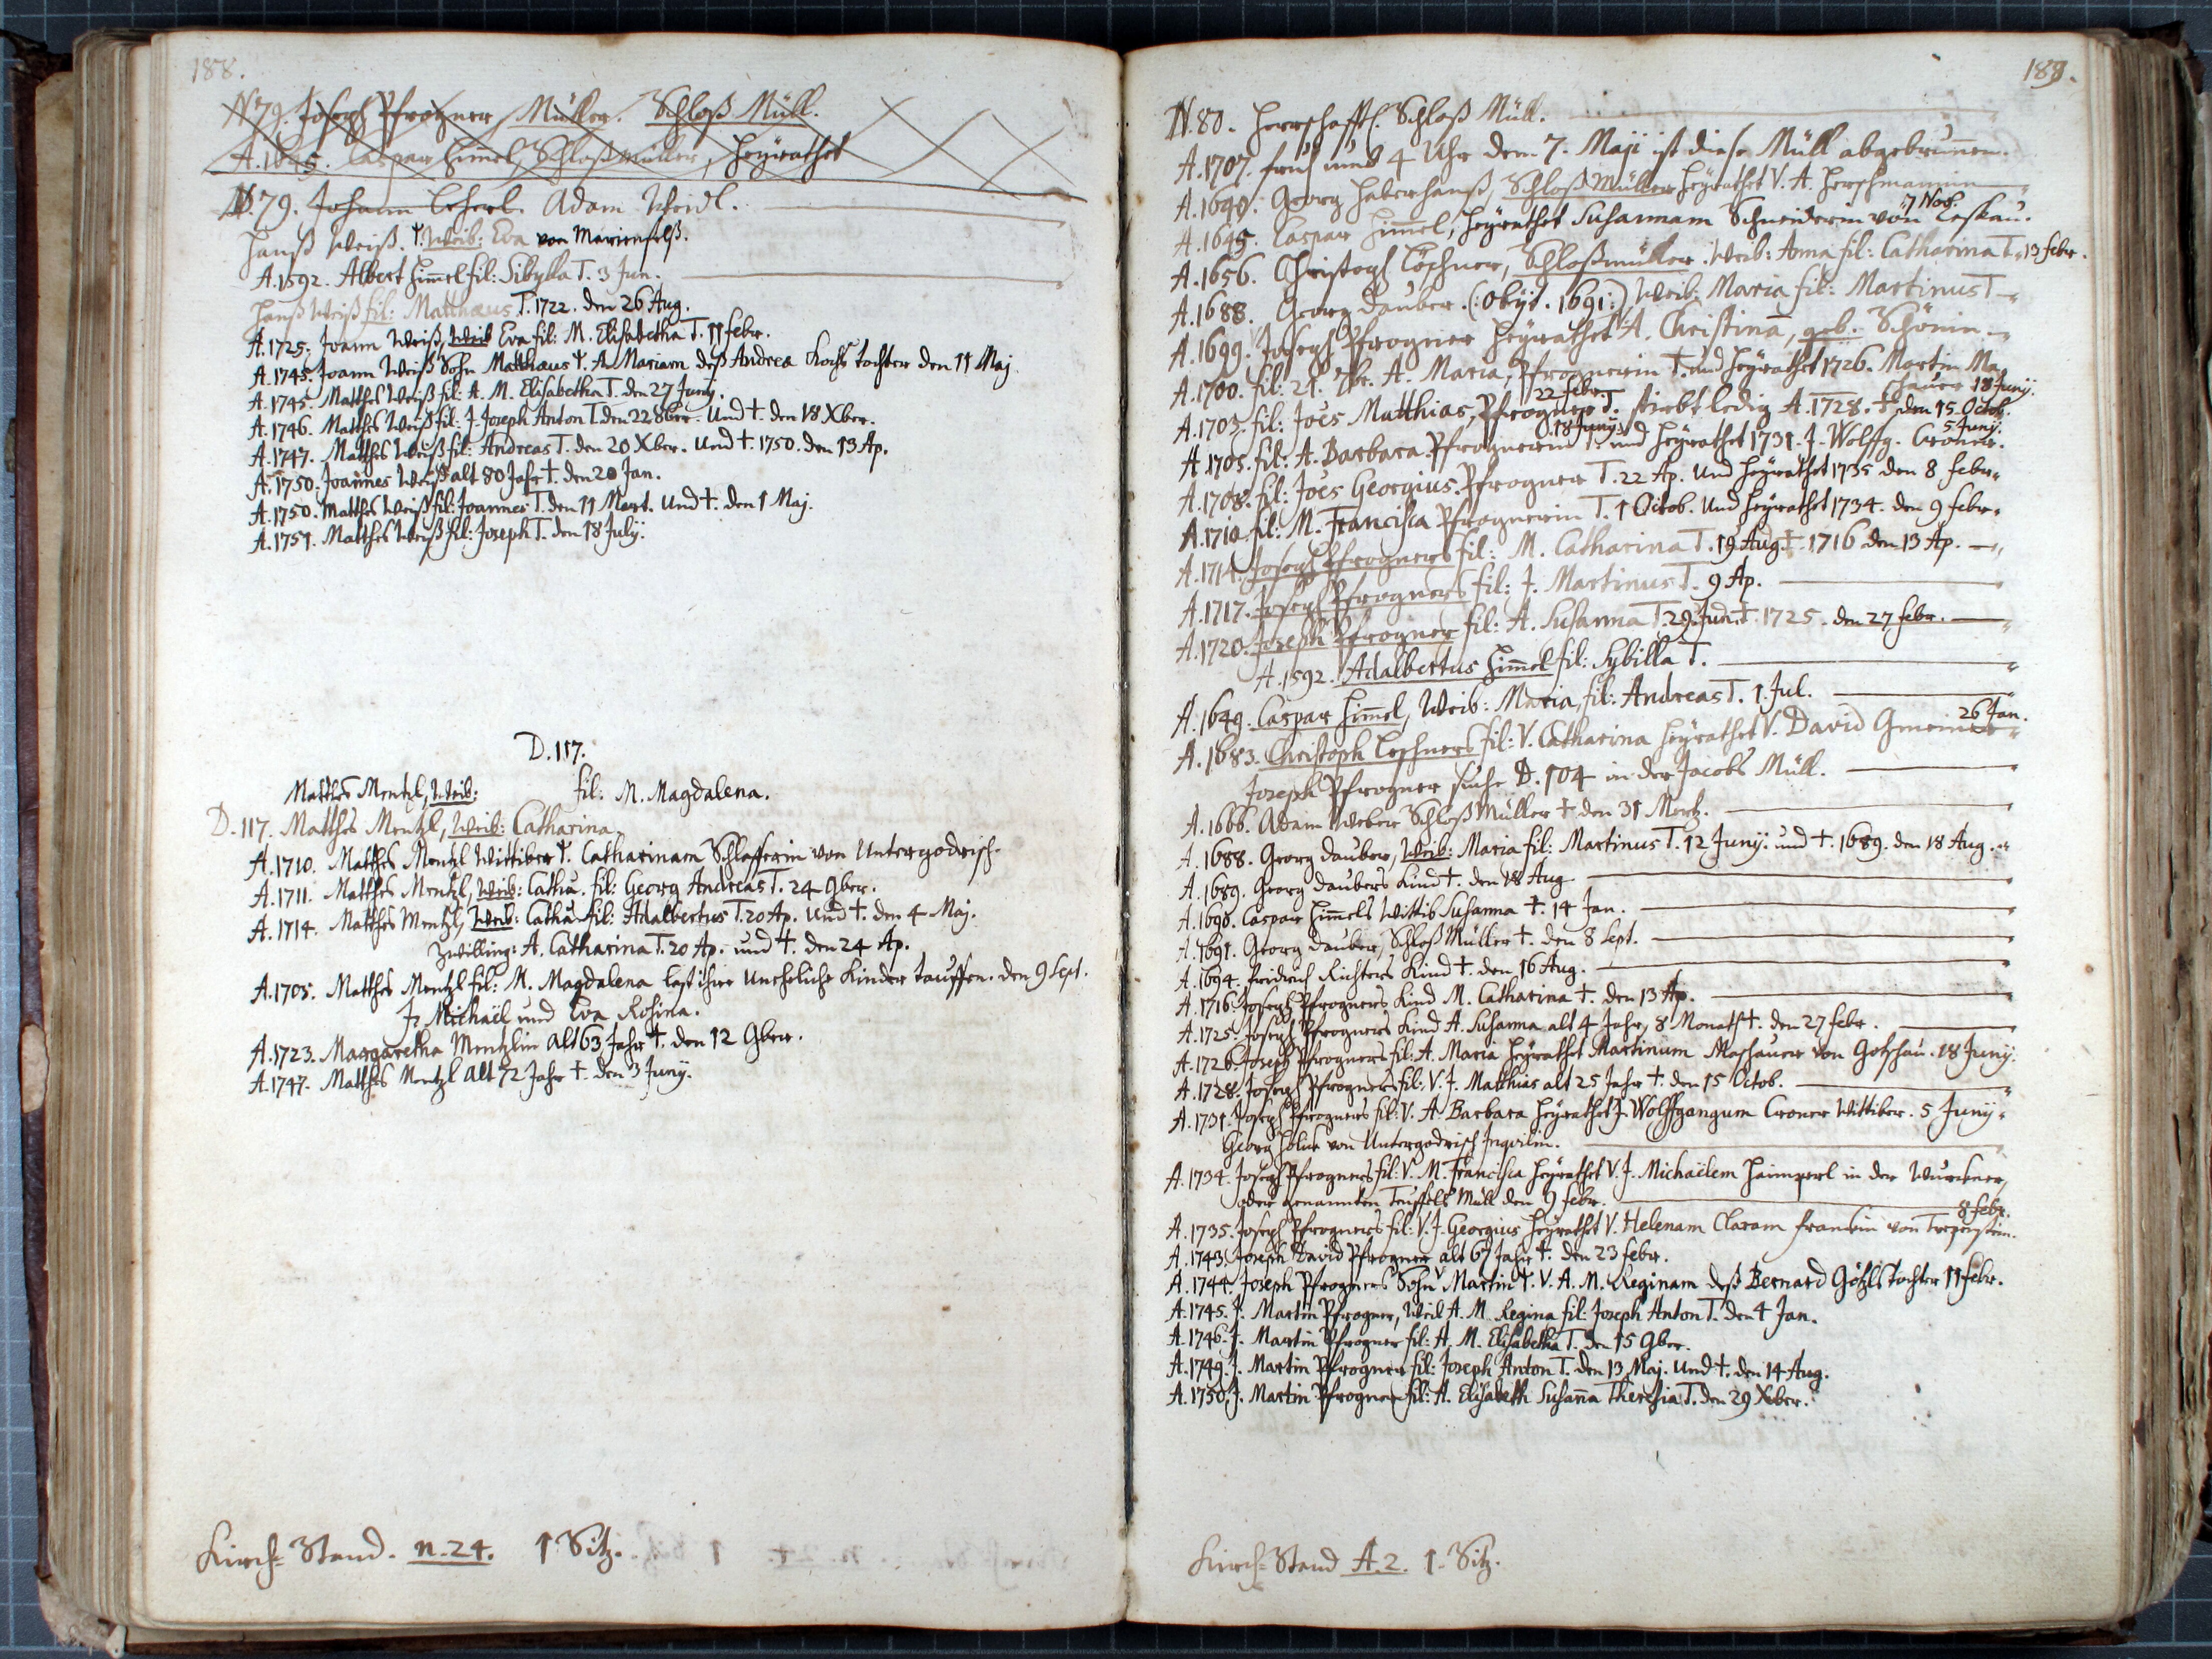 188.
N. 79. Joseph Pfrogner Müller. Schloß Müll.
A. 1645. Caspar Him̄el, Schloßmüller, heÿrathet
N. 79. Johann Adam Weidl.
Hanß Weiß. T. Weib: Eva von Marienfelß.
A. 1592. Albert Him̄el fil: Sibylla T. 3 Jun.
Hanß Weiß fil: Matthæus T. 1722. den 26 Aug.
A. 1725. Joann Weiß, Weib Eva fil: M. Elisabetha T. 11 febr.
A. 1745. Joann Weiß Sohn Matthæus T. A. Mariam deß Andrea Kochs tochter den 11 Maj.
A. 1745. Matthes Weiß fil: A. M. Elisabetha T. den 27 Junÿ.
A. 1746. Matthes Weiß fil: J. Joseph Anton T. den 22 8ber. und †. den 18 Xber.
A. 1747. Matthes Weiß fil: Andreas T. den 20 Xber. und †. 1750. den 13 Ap.
A. 1750. Joannes Weiß alt 80 Jahr †. den 20 Jan.
A. 1750. Matthes Weiß fil: Joannes T. den 11 Mart. und †. den 1 Maj.
A. 1751. Matthes Weiß fil: Joseph T. den 18 Julÿ.
D. 117.
Matthes Mentzl, Weib: fil: M. Magdalena.
D. 117. Matthes Mentzl, Weib: Catharina
A. 1710. Matthes Mentzl Wittiber T. Catharinam Schlosserin von Untergodrisch.
A. 1711. Matthes Mentzl, Weib: Catha. fil: Georg Andreas T. 24 9ber.
A. 1714. Matthes Mentzl, Weib: Catha. fil: Adalbertus T. 20 Ap. und †. den 4 Maj.
Zwilling: A. Catharina T. 20 Ap. und †. den 24 Ap.
A. 1705. Matthes Mentzl fil: M. Magdalena last ihre Uneheliche Kinder tauffen. den 9 Sept.
J. Michaël und Eva Rosina.
A. 1723. Margaretha Mentzlin alt 63 Jahr †. den 12 9ber.
A. 1747. Matthes Mentzl alt 72 Jahr †. den 3 Junÿ.
Kirch-Stand. n. 24. 1 Sitz.
189.
N. 80. Herrschafftl. Schloß Müll.
A. 1707. fruh umb 4 Uhr dem 7. Maji ist diese Müll abgebrunnen.
A. 1640. Georg Haberhanß, Schloß Müller heÿrathet V. A. Herschmannin
7 Nob.
A. 1645. Caspar Him̄el, heÿrathet Susannam Schneiderin von Leskau.
A. 1656. Christoph Löschner, Schloßmüller. Weib: Anna fil: Catharina T. 13 febr.
A. 1688. Georg Dauber. (: Obÿt. 1691 :) Weib: Maria fil: Martinus T
A. 1699. Joseph Pfrogner heÿrathet A. Christina, geb. Schönin
A. 1700. fil: 21. 7br. A. Maria, Pfrognerin T. und heÿrathet 1726. Martin Ma-
schauer 18 Junÿ.
22 febr.
A. 1703. fil: Joēs Matthias, Pfrogner T. stirbt ledig A. 1728. † den 15. Octob.
18 Junÿ. 5 Junÿ.
A. 1705. fil: A. Barbara Pfrognerin T. und heÿrathet 1731. J. Wolffg. Croner.
A. 1708. fil: Joēs Georgius. Pfrogner T. 22 Ap. und heÿrathet 1735 den 8 febr.
A. 1710. fil: M. Francisca Pfrognerin T. 1 Octob. und heÿrathet 1734. den 9 febr.
A. 1714. Joseph Pfrogners fil: M. Catharina T. 19 Aug. † 1716 den 13 Ap.
A. 1717. Joseph Pfrogners fil: J. Martinus T. 9 Ap.
A. 1720. Joseph Pfrogner fil: A. Susanna T. 29. Jun. † 1725. den 27 febr.
A. 1592. Adalbertus Him̄el fil: Sybilla T.
A. 1649. Caspar Him̄el, Weib: Maria, fil: Andreas T. 1. Jul.
26 Jan.
A. 1683. Christoph Leschners fil: V. Catharina heÿrathet V. David Gmeiner
Joseph Pfrogner suche D. 104 in der Jacobs Müll.
A. 1666. Adam Weber Schloß Müller † den 31 Mertz.
A. 1688. Georg Dauber, Weib: Maria fil: Martinus T. 12 Junÿ. und †. 1689. den 18 Aug.
A. 1689. Georg Daubers Kind †. den 18 Aug
A. 1690. Caspar Him̄els Wittib Susanna †. 14 Jan.
A. 1691. Georg Dauber, Schloß Müller †. den 8 Sept.
A. 1694. Fridrich Richters Kind †. den 16 Aug.
A. 1716. Joseph Pfrogners Kind M. Catharina †. den 13 Ap.
A. 1725. Joseph Pfrogners Kind A. Susanna alt 4 Jahr, 8 Monath †. den 27 febr.
A. 1726. Joseph Pfrogners fil: A. Maria heÿrathet Martinum Maschauer von Gotschau. 18 Junÿ.
A. 1728. Joseph Pfrogners fil: V. J. Matthias alt 25 Jahr †. den 15 Octob.
A. 1731. Joseph Pfrogners fil: V. A. Barbara heÿrathet J. Wolffgangum Croner Wittiber. 5 Junÿ.
Georg von Untergodrisch Inquilin.
A. 1734. Joseph Pfrogners fil: V. M. Francisca heÿrathet V. J. Michaëlem Haimperl in der
oder genannten Teuffels Müll den 9 febr.
8 febr.
A. 1735. Joseph Pfrogners fil: V. J. Georgius heÿrathet V. Helenam Claram von
A. 1743. Joseph David Pfrogner alt 67 Jahr †. den 23 febr.
A. 1744. Joseph Pfrogners Sohn V. Martin T. V. A. M. Reginam deß Bernard Götzls tochter 11 febr.
A. 1745. J. Martin Pfrogner, Weib A. M. Regina fil: Joseph Anton T. den 4 Jan.
A. 1746. J. Martin Pfrogner fil: A. M. Elisabetha T. den 15 9ber.
A. 1749. J. Martin Pfrogner fil: Joseph Anton T. den 13 Maj. und †. den 14 Aug.
A. 1750. J. Martin Pfrogner fil: A. Elisabeth Susan̄a Theresia T. den 29 Xber.
Kirch-Stand A. 2. 1. Sitz.